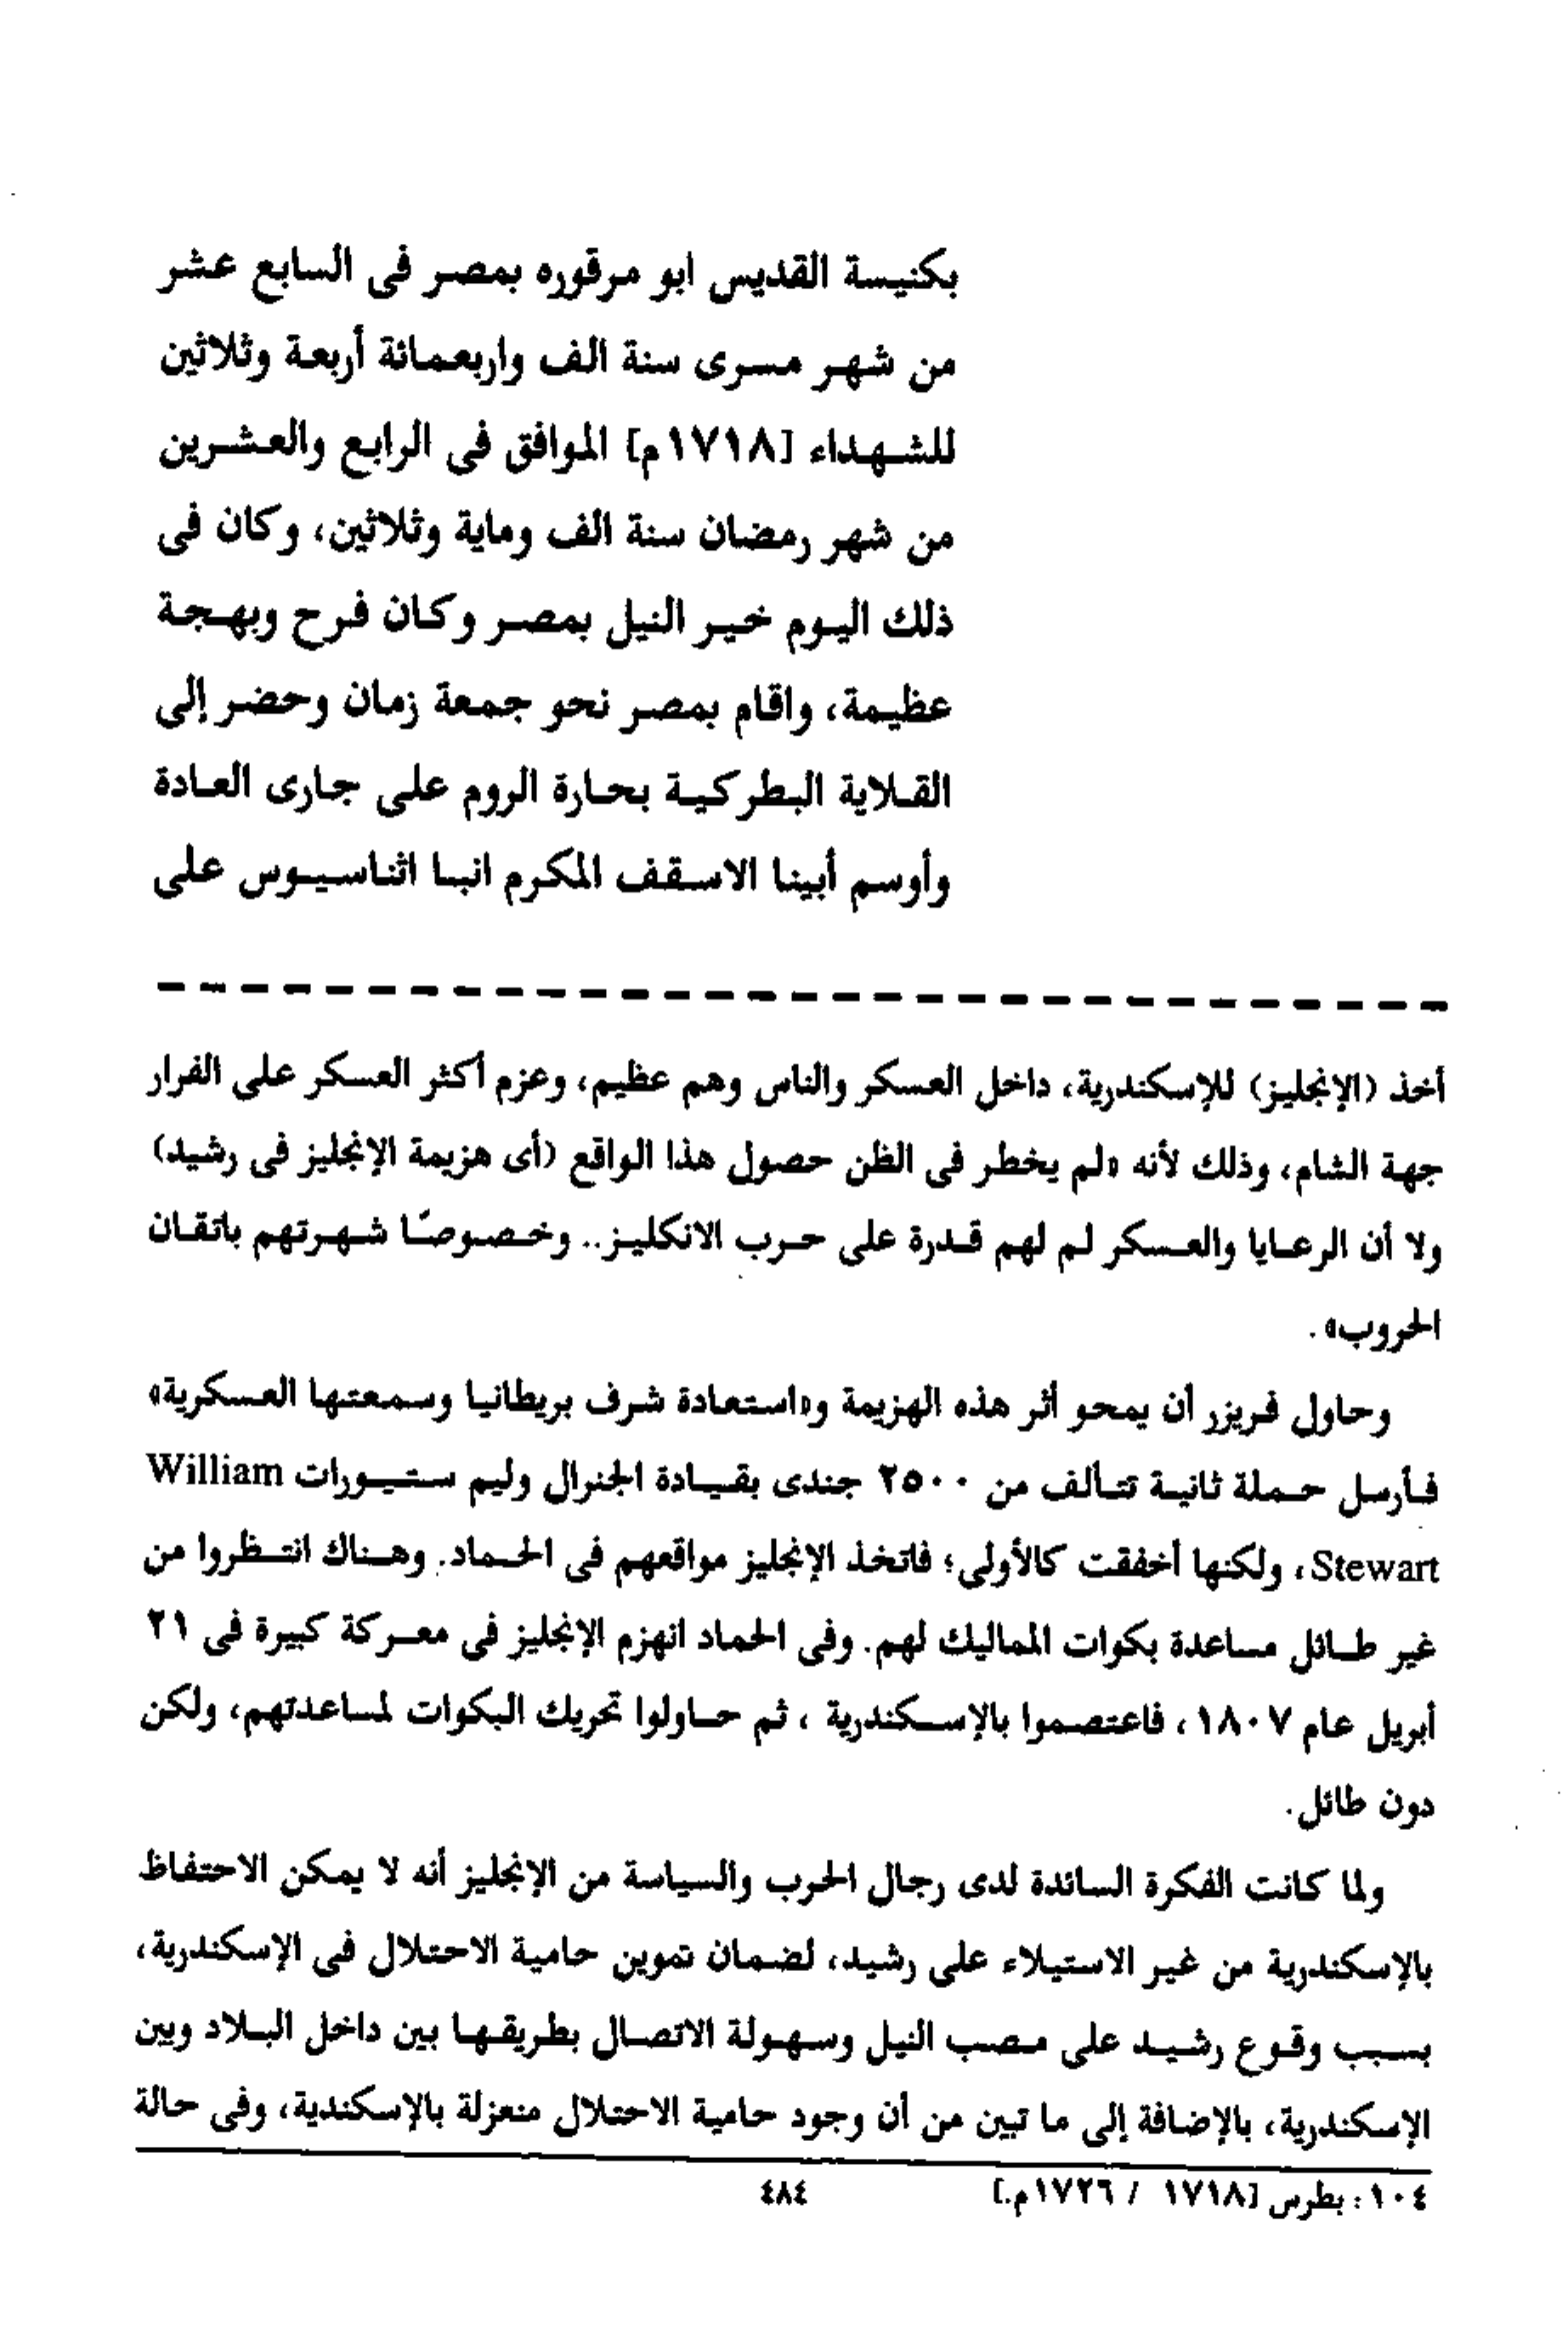 بكنيسة القديس ابو مرقوره بمصر فى السابع عشر
من شهر مسرى سنة الف واربعمائة أربعة وثلاثين
للشهداء [١٧١٨م] الموافق فى الرابع والعشرين
من شهر رمضان سنة الف وماية وثلاثين، وكان فى
ذلك اليوم خير النيل بمصر وكان فرح وبهجة
عظيمة، واقام بمصر نحو جمعة زمان وحضر إلى
القلاية البطركية بحارة الروم على جارى العادة
وأوسم أبينا الاسقف المكرم انبا اثناسيوس على
أخذ (الإنجليز) للإسكندرية، داخل العسكر والناس وهم عظيم، وعزم أكثر العسكر على الفرار
جهة الشام، وذلك لأنه «لم يخطر فى الظن حصول هذا الواقع (أى هزيمة الإنجليز فى رشيد)
ولا أن الرعايا والعسكر لم لهم قدرة على حرب الانكليز.. وخصوصًا شهرتهم باتقان
الحروب».
وحاول فريزر أن يمحو أثر هذه الهزيمة و«استعادة شرف بريطانيا وسمعتها العسكرية»
فأرسل حملة ثانية تتألف من ٢٥٠٠ جندى بقيادة الجنرال وليم ستيورات William
Stewart، ولكنها أخفقت كالأولى؛ فاتخذ الإنجليز مواقعهم فى الحماد. وهناك انتظروا من
غير طائل مساعدة بكوات المماليك لهم. وفى الحماد انهزم الإنجليز فى معركة كبيرة فى ٢١
أبريل عام ١٨٠٧، فاعتصموا بالإسكندرية ، ثم حاولوا تحريك البكوات لمساعدتهم، ولكن
دون طائل.
ولما كانت الفكرة السائدة لدى رجال الحرب والسياسة من الإنجليز أنه لا يمكن الاحتفاظ
بالإسكندرية من غير الاستيلاء على رشيد، لضمان تموين حامية الاحتلال فى الإسكندرية،
بسبب وقوع رشيد على مصب النيل وسهولة الاتصال بطريقها بين داخل البلاد وبين
الإسكندرية، بالإضافة إلى ما تبين من أن وجود حامية الاحتلال منعزلة بالإسكندية، وفى حالة
١٠٤: بطرس [١٧١٨ / ١٧٢٦م.] ٤٨٤